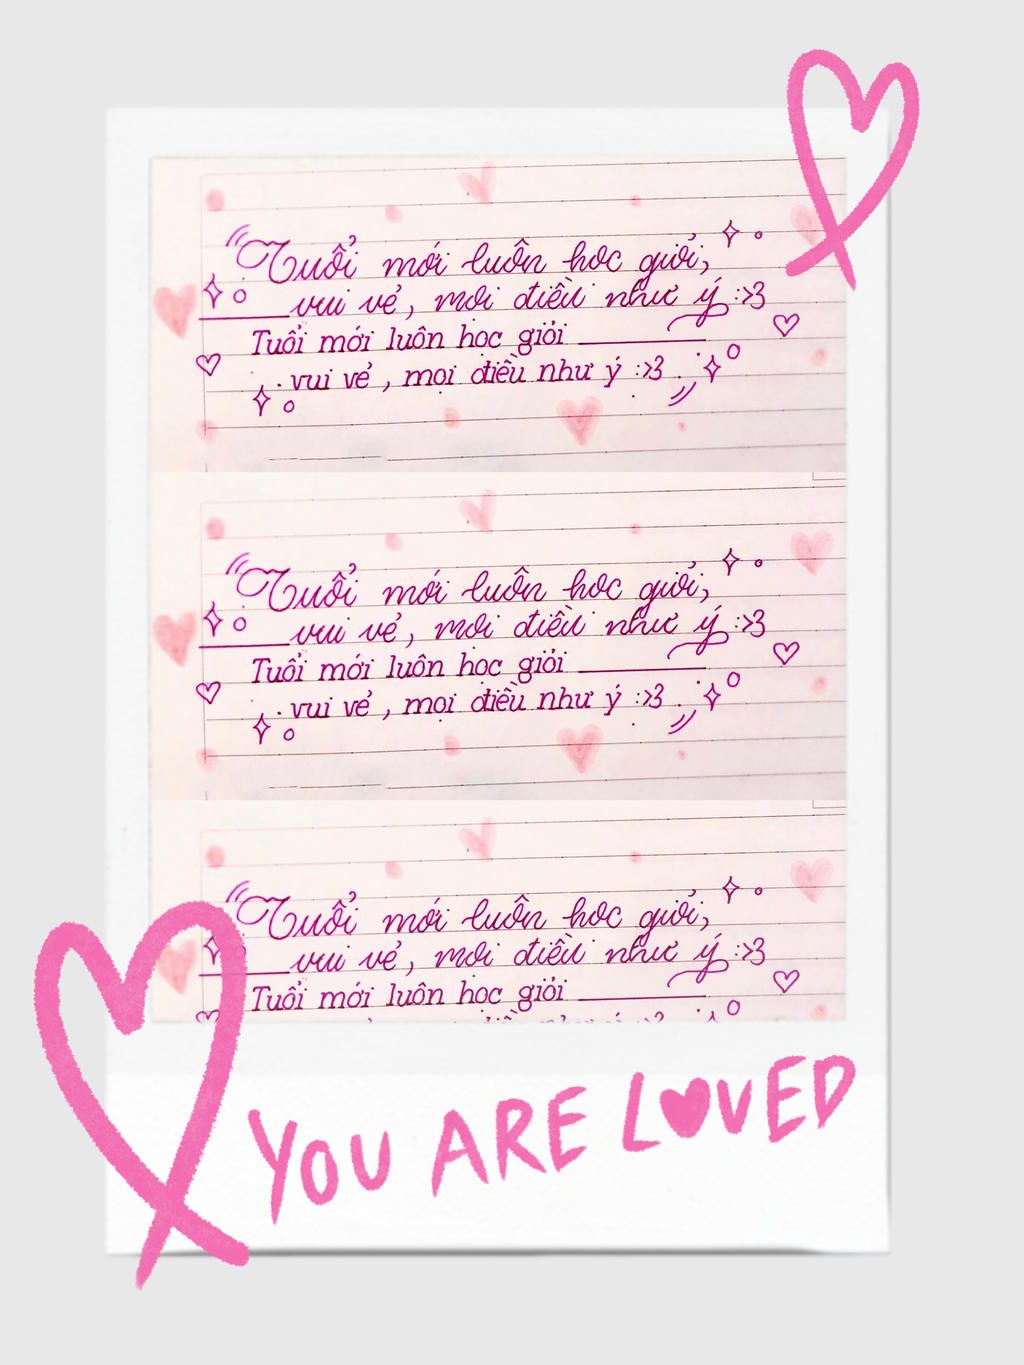 Tuổi mới luôn học giỏi,
vui vẻ, mọi điều như ý :>3
Tuổi mới luôn học giỏi
vui vẻ, mọi điều như ý :>3
Tuổi mới luôn học giỏi,
vui vẻ, mọi điều như ý :>3
Tuổi mới luôn học giỏi
vui vẻ, mọi điều như ý :>3
Tuổi mới luôn học giỏi,
vui vẻ, mọi điều như ý :>3
Tuổi mới luôn học giỏi
YOU ARE LOVED